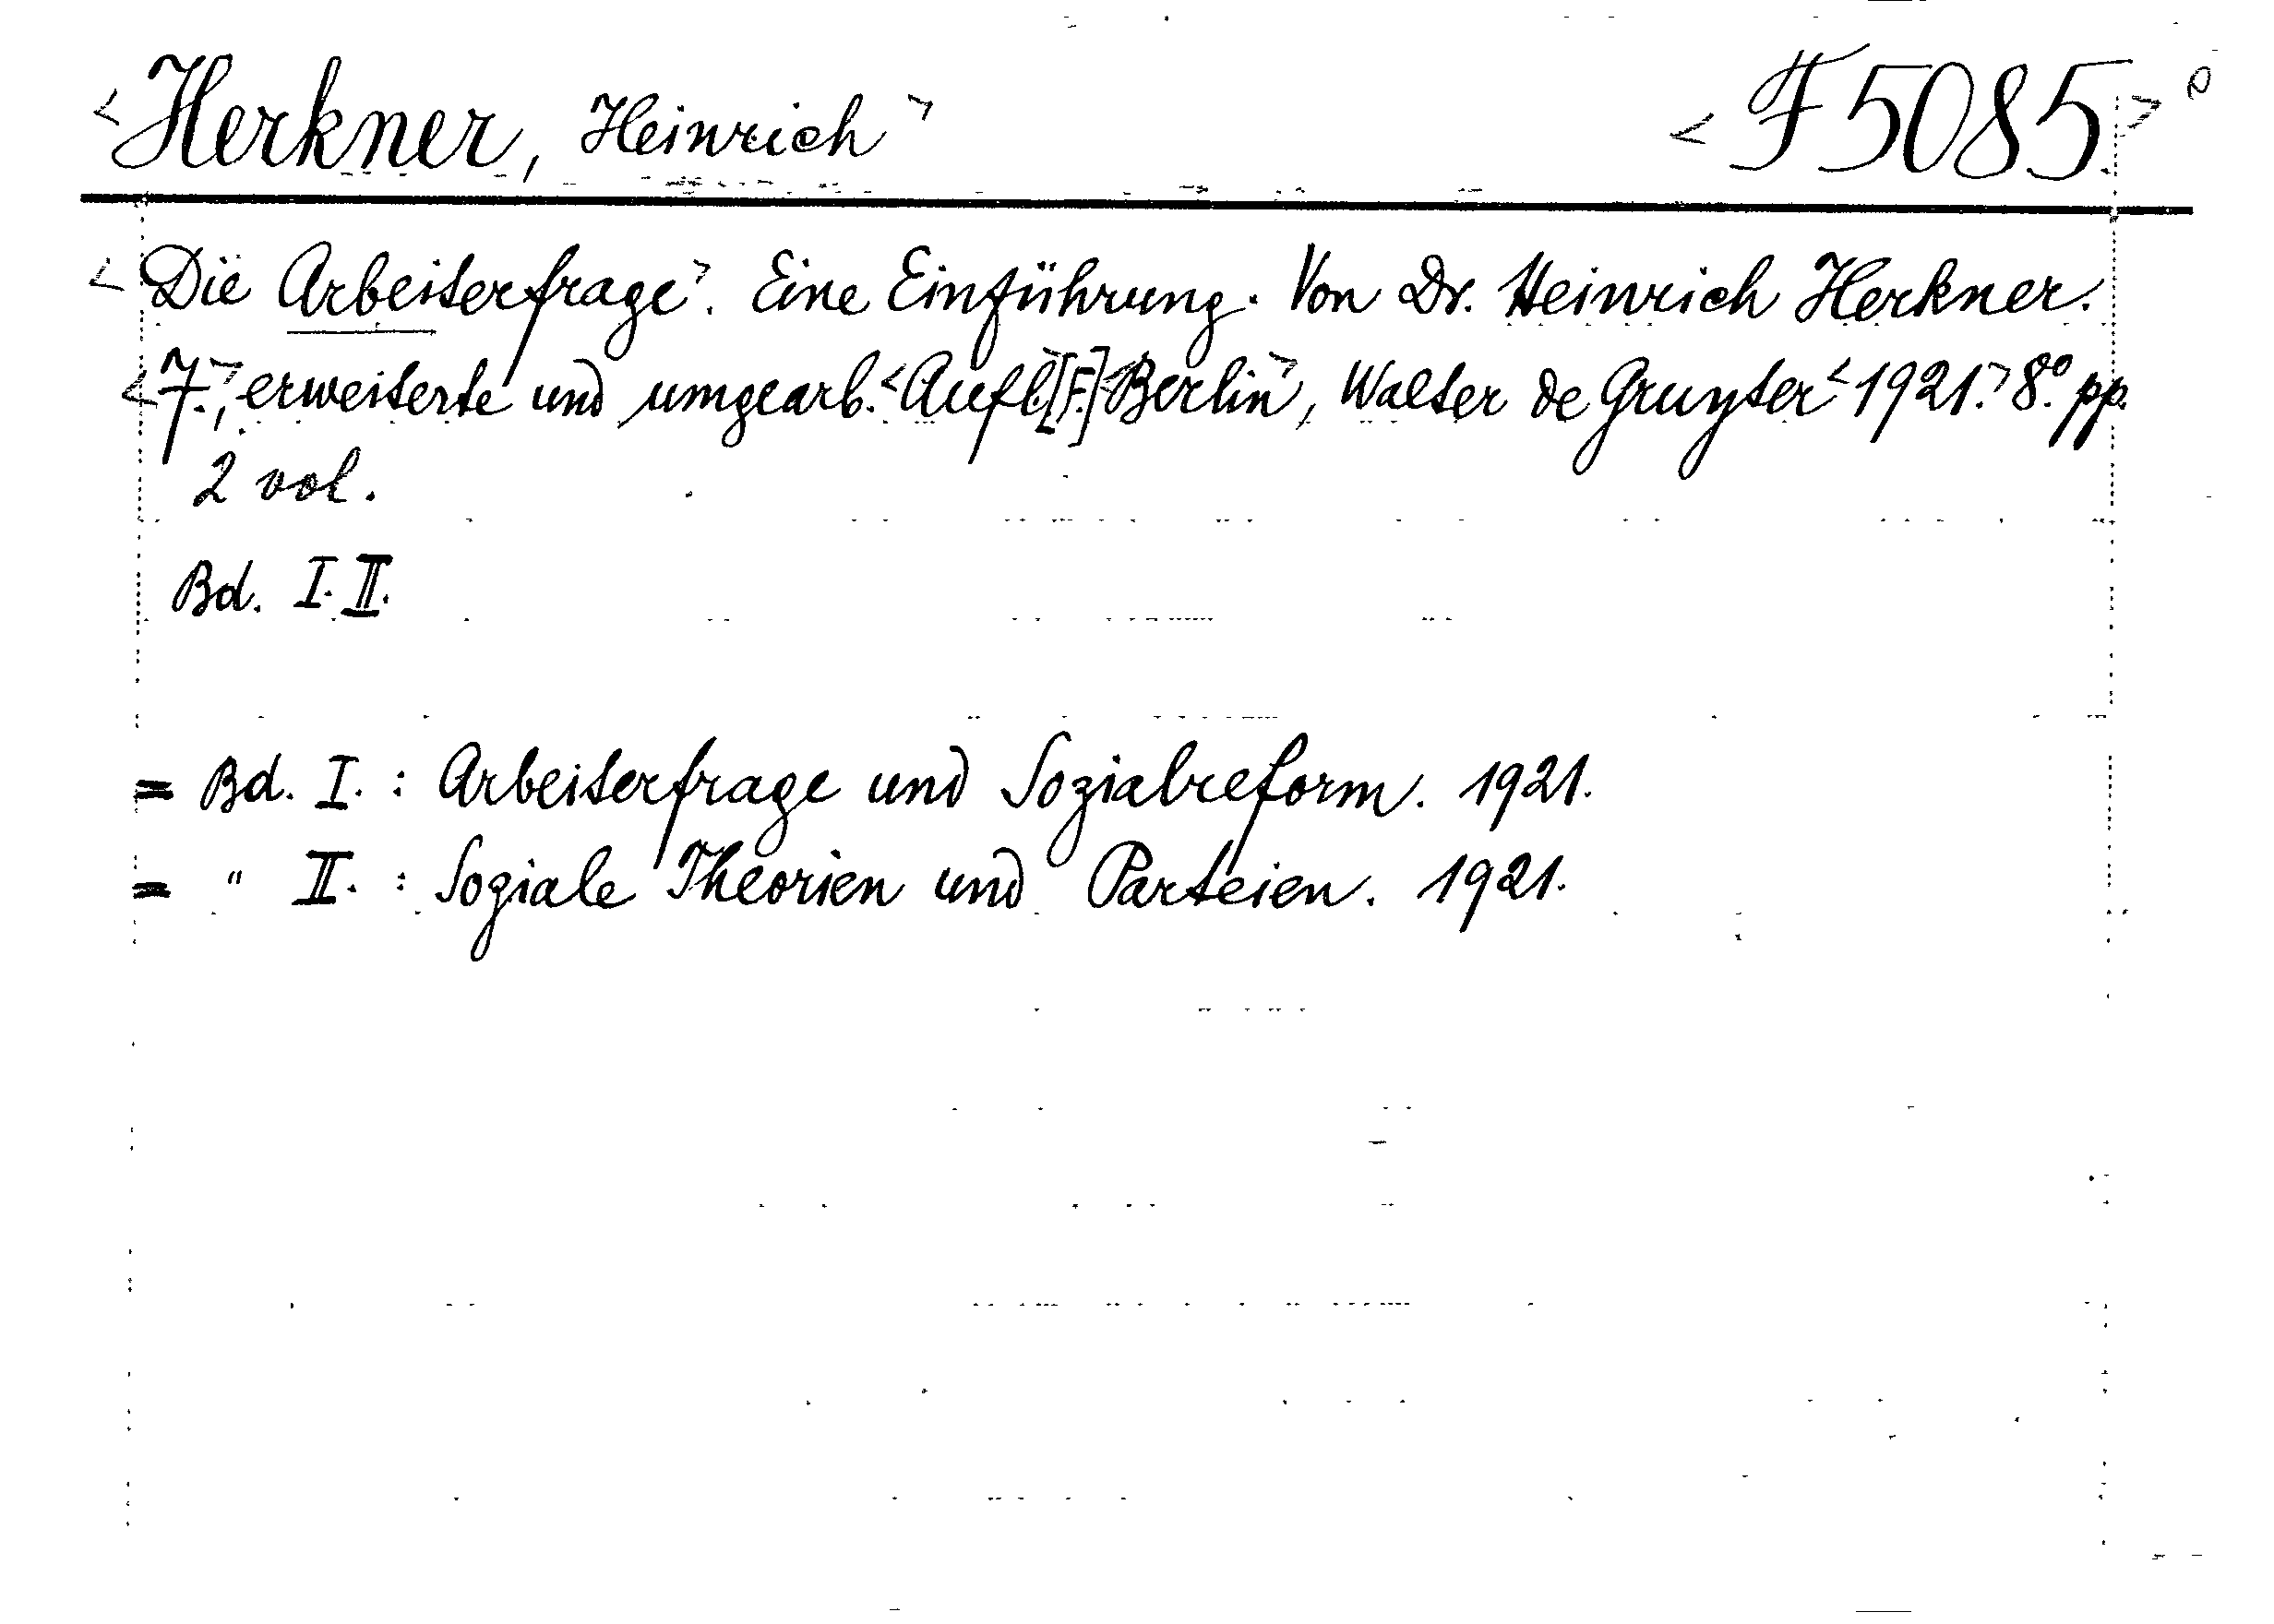 <Herkner, Heinrich> <F 5085.> 0
<Die Arbeiterfrage>. Eine Einführung. Von Dr. Heinrich Herkner.
<7.>, erweiterte und umgearb. <Aufl.> [F.] <Berlin>, Walter de Gruyter <1921.> 8°. pp.
2 vol.
Bd. I. II.
= Bd. I. : Arbeiterfrage und Sozialreform. 1921.
= " II. : Soziale Theorien und Parteien. 1921.